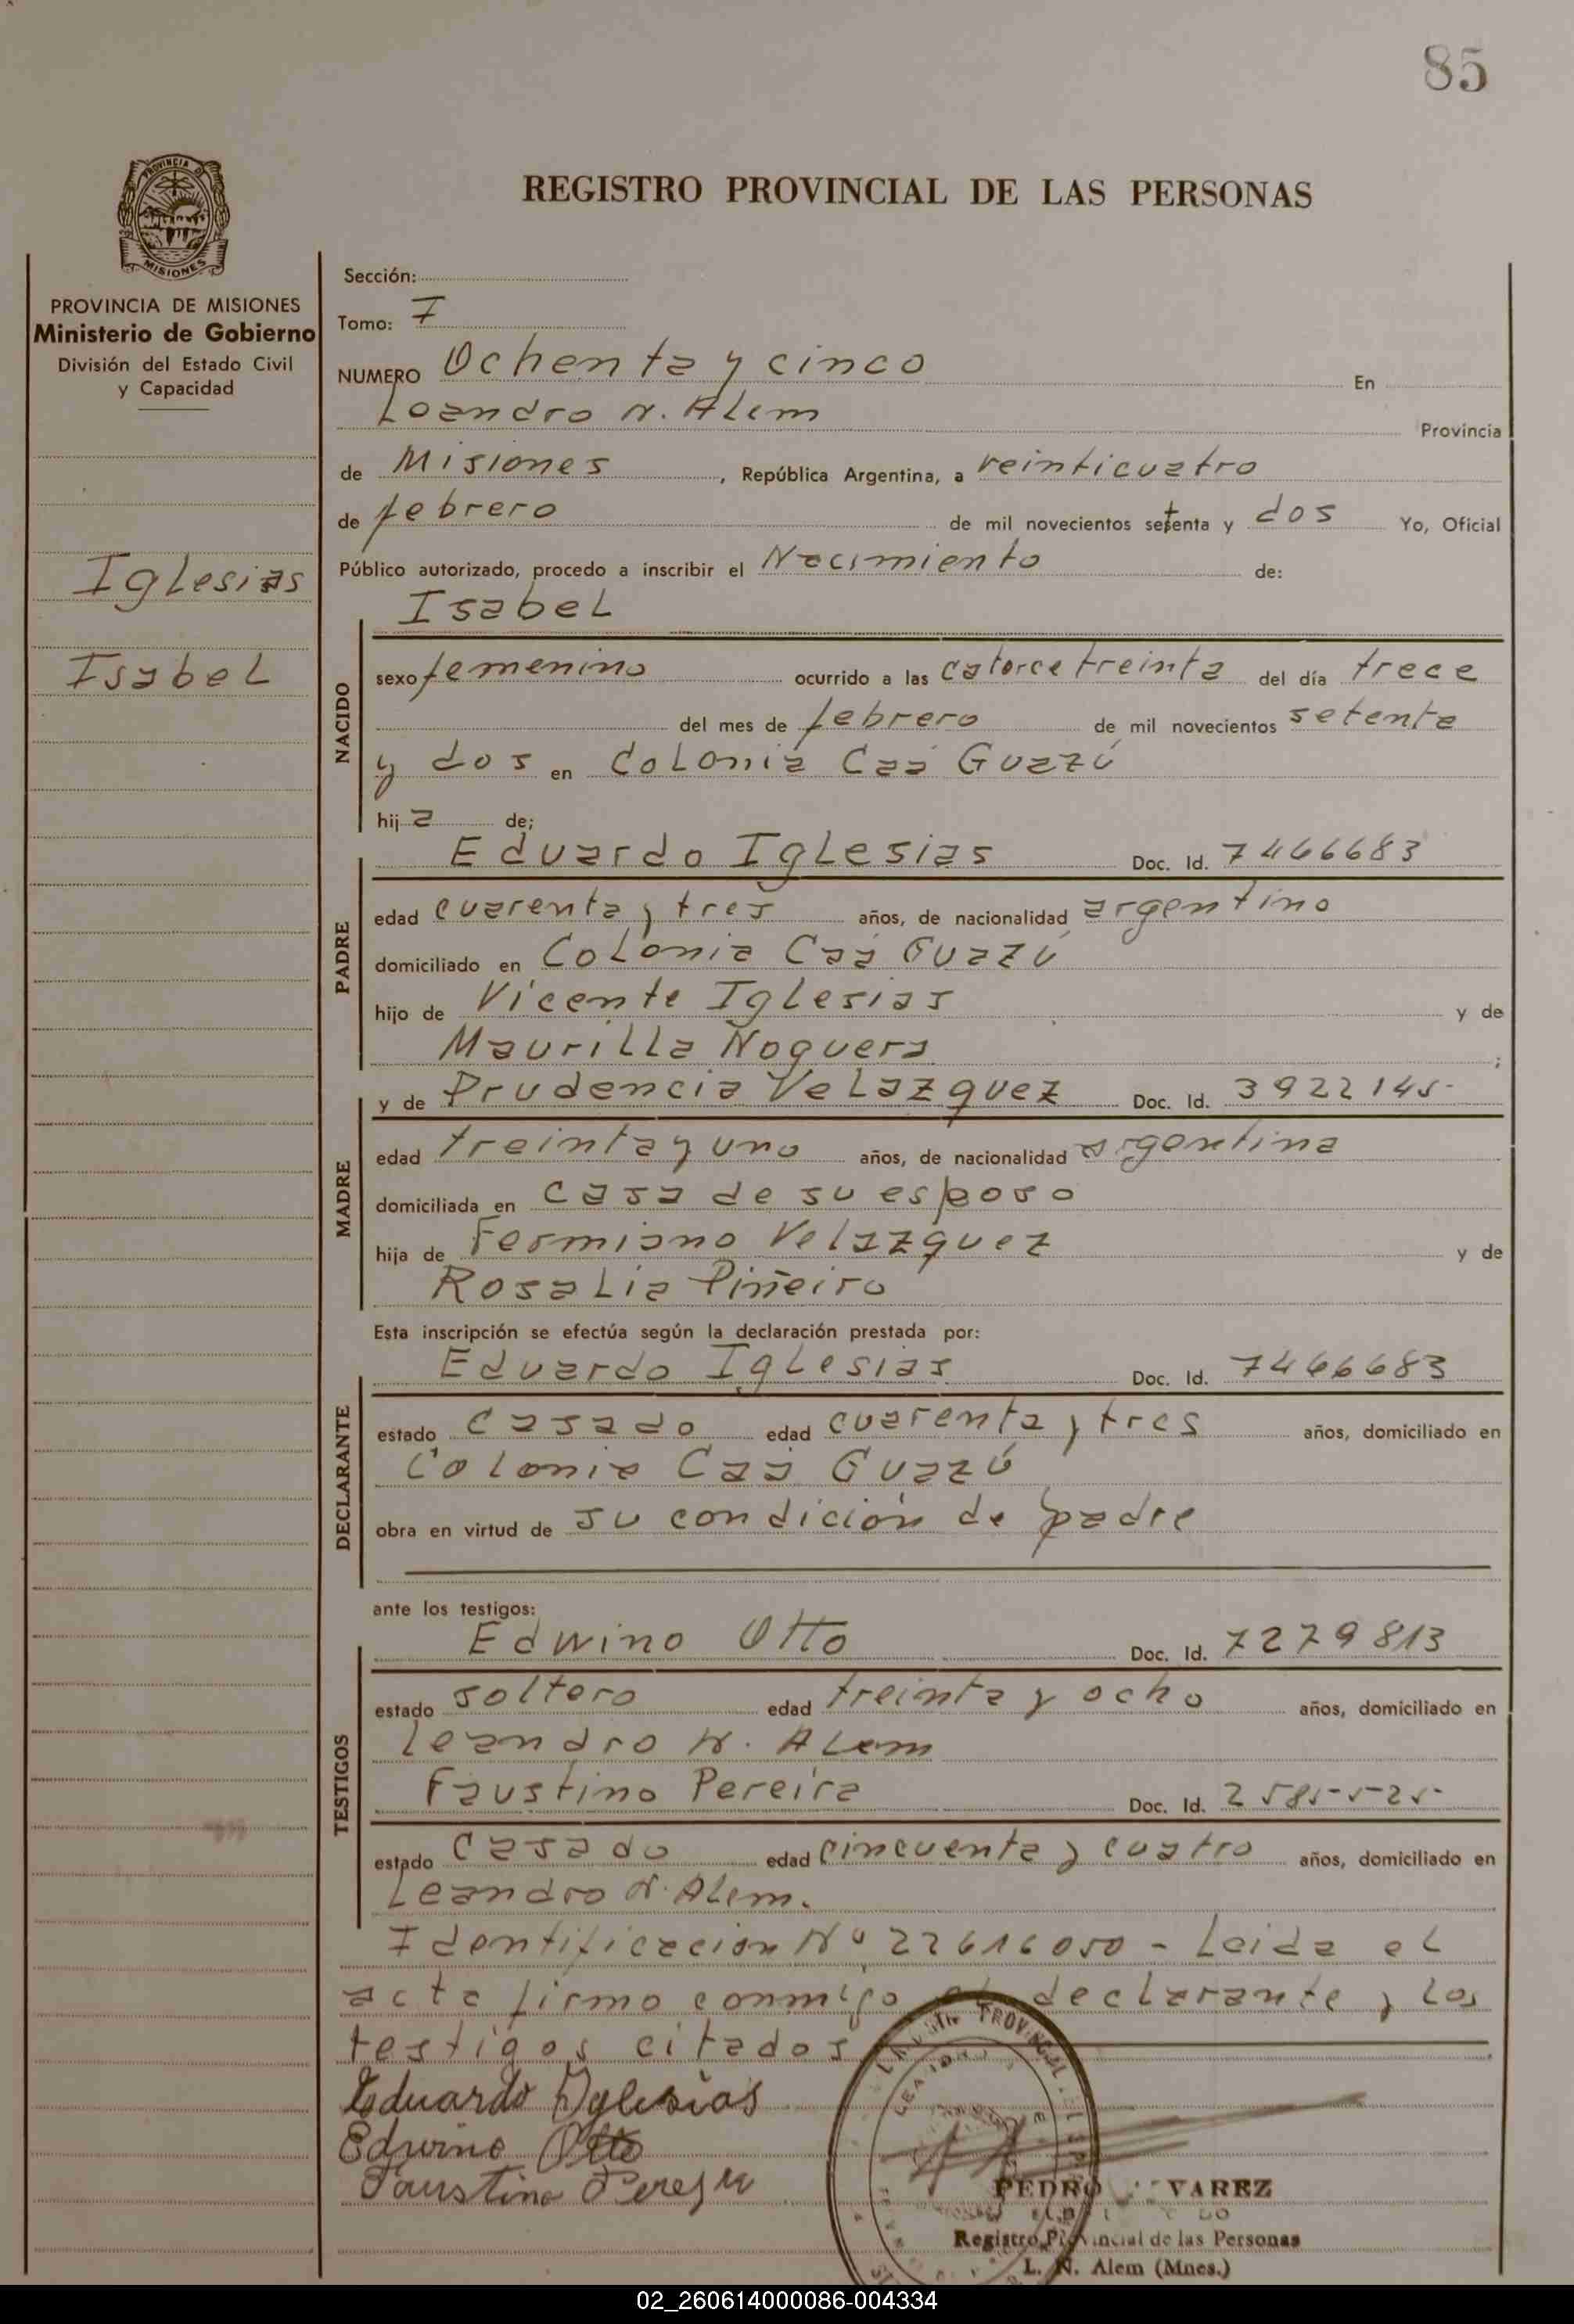 85
REGISTRO PROVINCIAL DE LAS PERSONAS
PROVINCIA DE MISIONES
Ministerio de Gobierno
División del Estado Civil
y Capacidad
Iglesias
Isabel
Sección:
Tomo: 7
NUMERO Ochenta y cinco En
Leandro N. Alem Provincia
de Misiones, República Argentina, a veinticuatro
de febrero de mil novecientos setenta y dos Yo, Oficial
Público autorizado, procedo a inscribir el Nacimiento de:
Isabel
NACIDO
sexo femenino ocurrido a las catorce treinta del día trece
del mes de febrero de mil novecientos setenta
y dos en Colonia Caá Guazú
hija de;
Eduardo Iglesias Doc. Id. 7466683
PADRE
edad cuarenta y tres años, de nacionalidad argentino
domiciliado en Colonia Caá Guazú
hijo de Vicente Iglesias y de
Maurilla Noguera;
y de Prudencia Velazquez Doc. Id. 3922145-
MADRE
edad treinta y uno años, de nacionalidad argentina
domiciliada en casa de su esposo
hija de Fermiano Velazquez y de
Rosalía Piñeiro
Esta inscripción se efectúa según la declaración prestada por:
Eduardo Iglesias Doc. Id. 7466683
DECLARANTE
estado casado edad cuarenta y tres años, domiciliado en
Colonia Caá Guazú
obra en virtud de su condición de padre
ante los testigos:
Edwino Otto Doc. Id. 7279813
TESTIGOS
estado soltero edad treinta y ocho años, domiciliado en
Leandro N. Alem
Faustino Pereira Doc. Id. 2585525-
estado casado edad cincuenta y cuatro años, domiciliado en
Leandro N. Alem.
Identificación Nº 22616050 - Leida el
acta firmo conmigo el declarante y los
testigos citados
Eduardo Iglesias
Edwino Otto
Faustino Pereira
PEDRO VAREZ
Registro Provincial de las Personas
L. N. Alem (Mnes.)
02_260614000086-004334